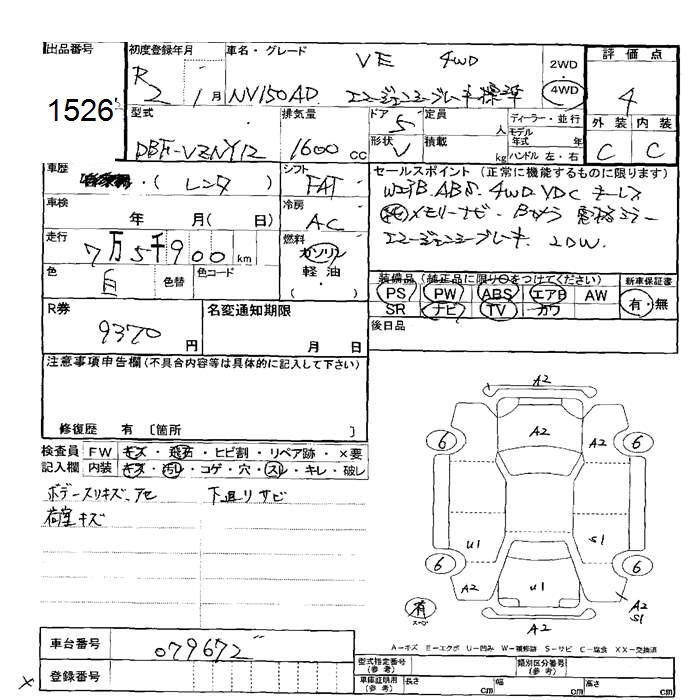 出品番号 初度登録年月 車名・グレード VE 4WD 2WD 評価点
1526 R2 1月 NV150AD エマージェンシーブレーキ標準 4WD 4
型式 排気量 ドア 5 定員 人 ディーラー・並行 外装 内装
DBF-VZNY12 1600cc 形状 V 積載 kg モデル年式 年 C C
ハンドル 左・右
車歴 (レンタ) シフト FAT セールスポイント(正常に機能するものに限ります)
WエアB.ABS.4WD.VDC キーレス
車検 年 月(日) 冷房 AC 純メモリーナビ.Bカメラ 電格ミラー
走行 7万5千900km 燃料 ガソリン エマージェンシーブレーキ. 2DW.
色 白 色替 色コード 軽・油 ( ・ )
装備品(純正品に限り○をつけてください) 新車保証書
PS PW ABS エアB AW 有・無
SR ナビ TV カワ
R券 9370円 名変通知期限 月 日 後日品
注意事項申告欄(不具合内容等は具体的に記入して下さい)
修復歴 有 〔箇所 〕
検査員 FW キズ・飛石・ヒビ割・リペア跡・×要
記入欄 内装 キズ・汚レ・コゲ・穴・スレ・キレ・破レ
ボデースリキズ、アセ 下廻りサビ
荷室キズ
A2
A2 A2
6 6
U1 S1
6 6
A2 U1 A2 S1
有 スペア A2
A-キズ E-エクボ U-凹み W-補修跡 S-サビ C-腐食 XX-交換済
車台番号 079672
登録番号
型式指定番号(参考) 類別区分番号(参考)
車庫証明用(参考) 長さ cm 幅 cm 高さ cm
×